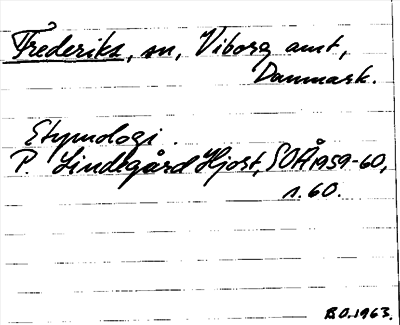 Frederiks, sn, Viborg amt,
Danmark.
Etymologi.
P. Lindegård Hjorth, SOÅ 1959-60,
s. 60.
B.O. 1963.